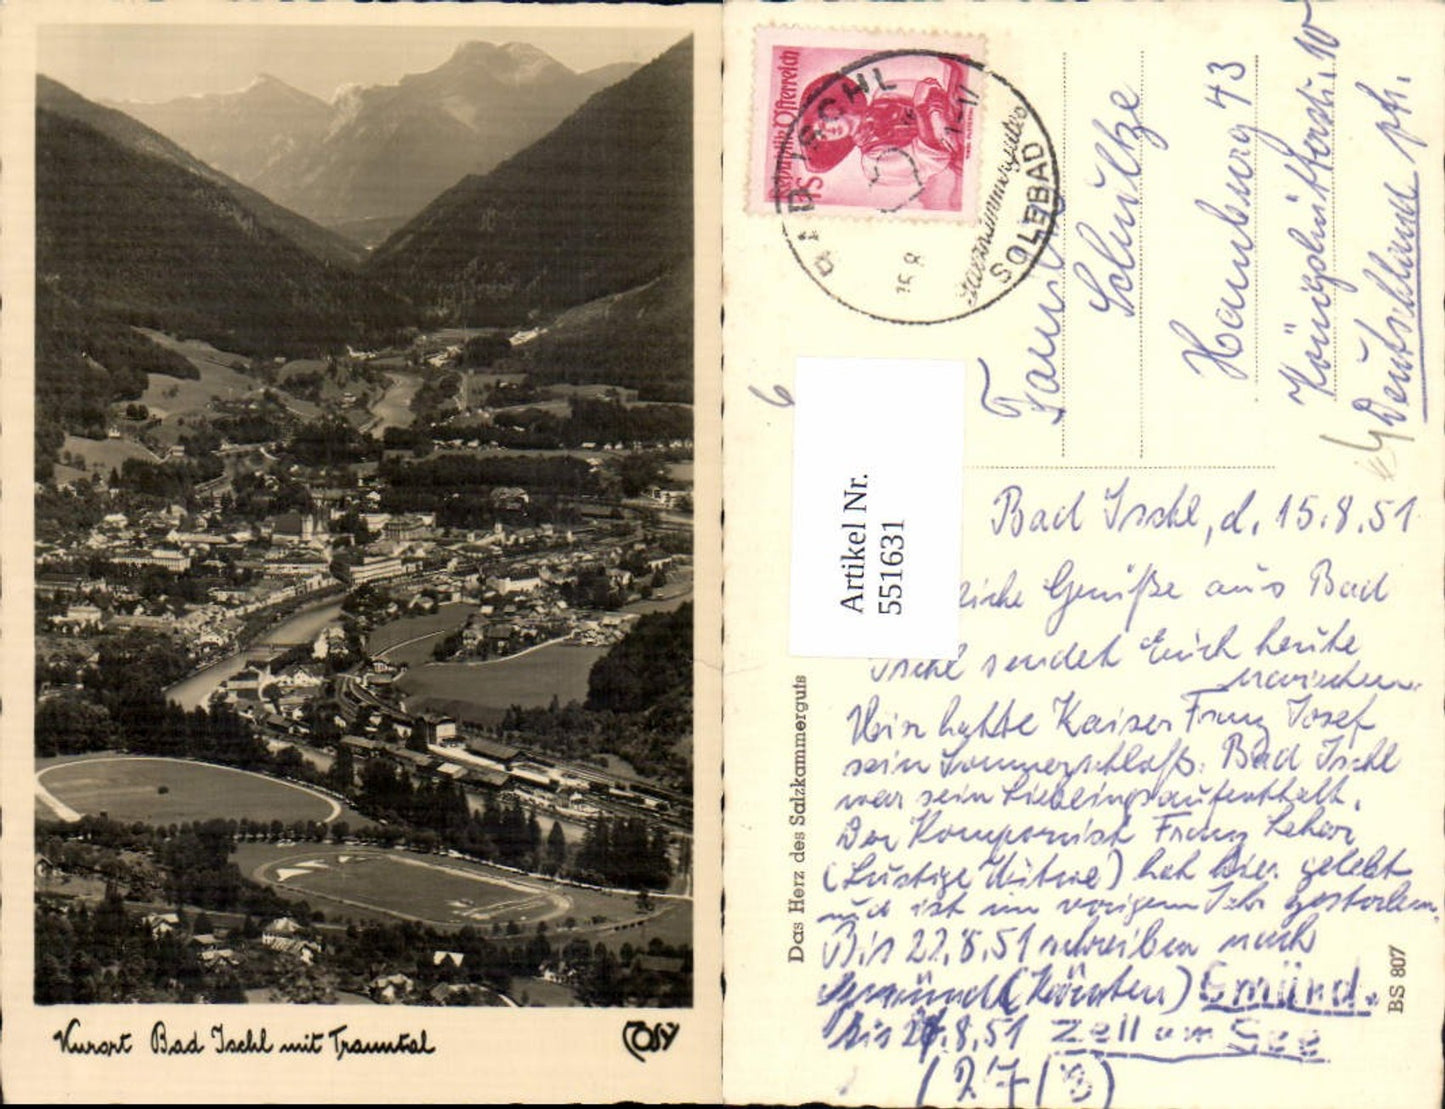 Kurort Bad Ischl mit Trauntal
Cosy
Republik Österreich
1S
BAD ISCHL
15.8
Salzkammergutes
SOLEBAD
Familie
Schultze
Hamburg 43
Deutschland
6
Artikel Nr.
551631
Das Herz des Salzkammerguts
BS 807
Bad Ischl, d. 15.8.51
Grüße aus Bad
Ischl sendet Euch heute
Hier hatte Kaiser Franz Josef
sein Sommerschloß. Bad Ischl
war sein Lieblingsaufenthalt.
Der Komponist Franz Lehar
(Lustige Witwe) hat hier gelebt
und ist im vorigen Jahr gestorben.
Bis 22.8.51 schreiben nach
Gmünd (Kärnten) Gmünd.
bis 27.8.51 Zell am See
(27/8)